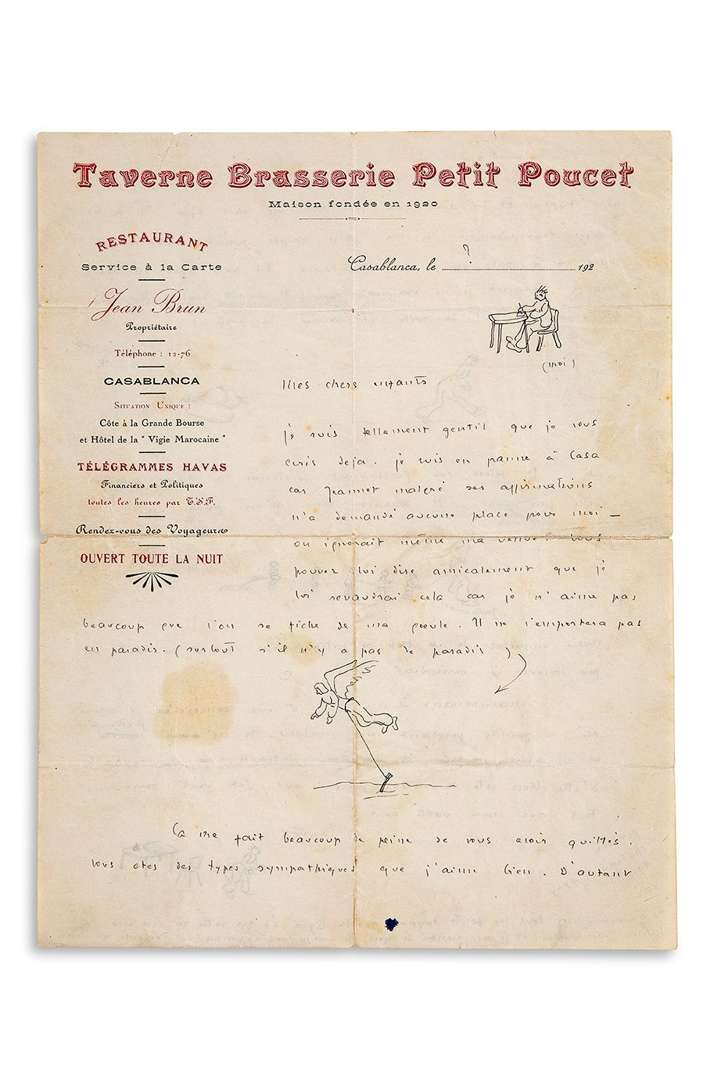 Taverne Brasserie Petit Poucet
Maison fondée en 1920
RESTAURANT
Service à la Carte
Jean Brun
Propriétaire
Téléphone : 12-76
CASABLANCA
SITUATION UNIQUE :
Côte à la Grande Bourse
et Hôtel de la "Vigie Marocaine"
TÉLÉGRAMMES HAVAS
Financiers et Politiques
toutes les heures par T.S.F.
Rendez-vous des Voyageurs
OUVERT TOUTE LA NUIT
Casablanca, le ? 192
(moi)
Mes chers enfants
je suis tellement gentil que je vous
ecris deja. je suis en panne à Casa
car malgré ses affirmations
n'a demandé aucune place pour moi _
on ignorait même ma venue. Vous
pouvez lui dire amicalement que je
lui revaudrai cela car je n'aime pas
beaucoup que l'on se fiche de ma gueule. Il ne l'emportera pas
en paradis. (surtout s'il n'y a pas de paradis)
Ça me fait beaucoup de peine de vous avoir quittés.
Vous etes des types sympathiques que j'aime bien. D'autant